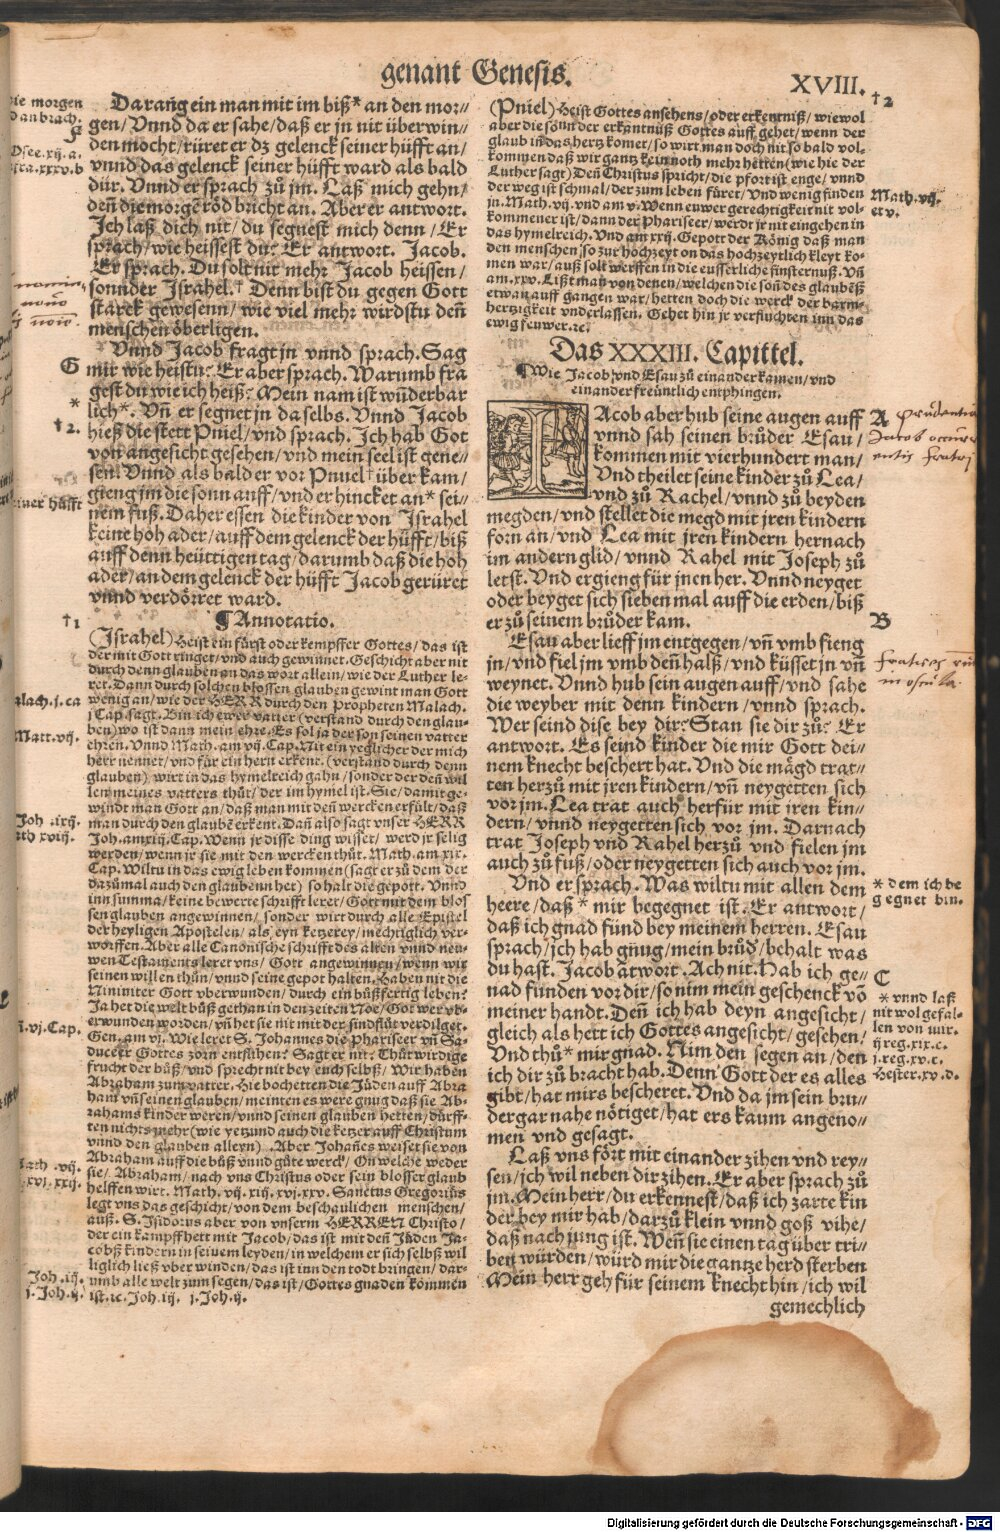 genant Genesis.
XVIII.
Da rang ein man mit im biß* an den mor⸗
gen/ Vnnd da er sahe/ daß er jn nit überwin⸗
den mocht/ rüret er dz gelenck seiner hüfft an/
vnnd das gelenck seiner hüfft ward als bald
dür. Vnnd er sprach zů jm. Laß mich gehn/
deñ die morgē röd bricht an. Aber er antwort.
Ich laß dich nit/ du segnest mich denn/ Er
sprach/ wie heissest du? Er antwort. Jacob.
Er sprach. Du solt nit mehr Jacob heissen/
sonnder Israhel.† Denn bist du gegen Gott
starck gewesenn/ wie viel mehr wirdstu deñ
menschen öberligen.
Vnnd Jacob fragt jn vnnd sprach. Sag
mir wie heistu? Er aber sprach. Warumb fra
gest du wie ich heiß? Mein nam ist wüderbar
lich*. Vñ er segnet jn daselbs. Vnnd Jacob
hieß die stett Pniel/ vnd sprach. Ich hab Got
von angesicht gesehen/ vnd mein seel ist gene⸗
sen. Vnnd als bald er vor Pnuel† über kam/
gieng jm die sonn auff/ vnd er hincket an* sei⸗
nem fuß. Daher essen die kinder von Israhel
keine hoh ader/ auff dem gelenck der hüfft/ biß
auff denn heüttigen tag/ darumb daß die hoh
ader/ an dem gelenck der hüfft Jacob gerüret
vnnd verdörret ward.
¶ Annotatio.
(Israhel) Heist ein fürst oder kempffer Gottes/ das ist
der mit Gott ringet/ vnd auch gewinnet. Geschicht aber nit
durch denn glauben an das wort allein/ wie der Luther le⸗
ret. Dann durch solchen blossen glauben gewint man Gott
wenig an/ wie der HERR durch den Propheten Malach.
j Cap. sagt. Bin ich ewer vatter (verstand durch den glau⸗
ben) wo ist dann mein ehre. Es sol ja der son seinen vatter
ehren. Vnnd Math. am vij. Cap. Nit ein yeglicher der mich
herr nennet/ vnd für ein hern erkent. (verstand durch denn
glauben) wirt in das hymelreich gahn/ sonder der deñ wil
len meines vatters thůt/ der im hymel ist. Sie/ damit ge⸗
windt man Gott an/ daß man mit deñ wercken erfült/ daß
man durch den glaubē erkent. Dañ also sagt vnser HERR
Joh. am xiij. Cap. Wenn jr disse ding wisset/ werd jr selig
werden/ wenn jr sie mit den wercken thůt. Math. am xix.
Cap. Wiltu in das ewig leben kommen (sagt er zů dem der
dazůmal auch den glaubenn het) so halt die gepott. Vnnd
inn summa/ keine bewerte schrifft leret/ Gott mit dem blos
sen glauben angewinnen/ sonder wirt durch alle Epistel
der heyligen Apostelen/ als eyn ketzerey/ mechtiglich ver⸗
worffen. Aber alle Canonische schrifft des alten vnnd neu⸗
wen Testaments leret vns/ Gott angewinnen/ wenn wir
seinen willen thün/ vnnd seine gepot halten. Haben nit die
Niniuiter Gott vberwunden/ durch ein bůßfertig leben?
Ja het die welt bůß gethan in den zeiten Noe/ Got wer vb⸗
erwunden worden/ vñ het sie nit mit der sindflüt verdilget.
Gen. am vj. Wie leret S. Johannes die Phariseer vñ Sa⸗
duceer Gottes zorn entfliehen? Sagt er nit: Thůt wirdige
frucht der bůß/ vnd sprecht nit bey euch selbß/ Wir haben
Abraham zum vatter. Hie bochetten die Jüden auff Abra
ham vñ seinen glauben/ meinten es were gnug daß sie Ab⸗
rahams kinder weren/ vnnd seinen glauben hetten/ dürff⸗
ten nichts mehr (wie yetzund auch die ketzer auff Christum
vnnd den glauben alleyn). Aber Johañes weiset sie von
Abraham auff die bůß vnnd gůte werck/ On welche weder
sie/ Abraham/ nach vns Christus oder sein blosser glaub
helffen wirt. Math. vij. xij. xvj. xxv. Sanctus Gregorius
legt vns das geschicht/ von dem beschaulichen menschen/
auß. S. Isidorus aber von vnserm HERREN Christo/
der ein kampff hett mit Jacob/ das ist mit deñ Jüden Ja⸗
cobß kindern in seinem leyden/ in welchem er sich selbß wil
liglich ließ vber winden/ das ist inn den todt bringen/ dar⸗
umb alle welt zum segen/ das ist/ Gottes gnaden kommen
ist. ic. Joh. iij. j. Joh. ij.
ie morgen
dan brach.
F
Osee. xij. a.
xxxv. b
G
*
†2.
hüfft
†1
alach. j. ca
Matt. vij.
Joh. xiij.
xviij.
vj. Cap.
ath. vij.
xvj. xxij.
Joh. iij.
j. Joh. ij.
(Pniel) Heist Gottes ansehens/ oder erkentniß/ wiewol
aber die sonn der erkantnüß Gottes auff gehet/ wenn der
glaub in das hertz komet/ so wirt man doch nit so bald vol⸗
kommen daß wir gantz kein noth mehr hetten (wie hie der
Luther sagt) Deñ Christus spricht/ die pfort ist enge/ vnnd
der weg ist schmal/ der zum leben füret/ Vnd wenig finden
jn. Math. vij. vnd am v. Wenn euwer gerechtigkeit nit vol⸗
kommener ist/ dann der Phariseer/ werdt jr nit eingehen in
das hymelreich. Vnd am xxij. Gepott der König daß man
den menschen/ so zur hochzeyt on das hochzeytlich kleyt ko⸗
men war/ auß solt werffen in die eusserliche finsternuß. Vñ
am. xxv. Lißt mañ von denen/ welchen die soñ des glaubēß
etwan auff gangen war/ hetten doch die werck der barm⸗
hertzigkeit vnderlassen. Gehet hin jr verfluchten inn das
ewig feuwer. ꝛc.
†2
Math. vij.
et v.
Das XXXIII. Capittel.
¶ Wie Jacob vnd Esau zů einander kamen/ vnd
einander freüntlich entphingen.
IAcob aber hub seine augen auff
vnnd sah seinen brůder Esau/
kommen mit vierhundert man/
Vnd theilet seine kinder zů Lea/
vnd zů Rachel/ vnnd zů beyden
megden/ vnd stellet die megd mit jren kindern
forn an/ vnd Lea mit jren kindern hernach
im andern glid/ vnnd Rahel mit Joseph zů
letst. Vnd er gieng für jnen her. Vnnd neyget
oder beyget sich sieben mal auff die erden/ biß
er zů seinem brůder kam.
Esau aber lieff jm entgegen/ vñ vmb fieng
jn/ vnd fiel jm vmb deñ halß/ vnd küsset jn vñ
weynet. Vnnd hub sein augen auff/ vnd sahe
die weyber mit denn kindern/ vnnd sprach.
Wer seind dise bey dir? Stan sie dir zů? Er
antwort. Es seind kinder die mir Gott dei⸗
nem knecht beschert hat. Vnd die mägd trat⸗
ten herzů mit jren kindern/ vñ neygetten sich
vor jm. Lea trat auch herfür mit jren kin⸗
dern/ vnnd neygetten sich vor jm. Darnach
trat Joseph vnd Rahel herzů vnd fielen jm
auch zů fůß/ oder neygetten sich auch vor jm.
Vnd er sprach. Was wiltu mit allen dem
heere/ daß* mir begegnet ist. Er antwort/
daß ich gnad fünd bey meinem herren. Esau
sprach/ ich hab gnůg/ mein brůd/ behalt was
du hast. Jacob ātwort. Ach nit. Hab ich ge⸗
nad funden vor dir/ so nim mein geschenck võ
meiner handt. Deñ ich hab deyn angesicht/
gleich als hett ich Gottes angesicht/ gesehen/
Vnd thů* mir gnad. Nim den segen an/ den
ich dir zů bracht hab. Denn Gott der es alles
gibt/ hat mirs bescheret. Vnd da jm sein brů⸗
der gar nahe nötiget/ hat ers kaum angeno⸗
men vnd gesagt.
Laß vns fort mit einander zihen vnd rey⸗
sen/ ich wil neben dir zihen. Er aber sprach zů
jm. Mein herr/ du erkennest/ daß ich zarte kin
der bey mir hab/ darzů klein vnnd goß vihe/
daß nach jung ist. Weñ sie einen tag über tri⸗
ben würden/ würd mir die gantze herd sterben
Mein herr geh für seinem knecht hin/ ich wil
gemechlich
A
Jacob
fratri
B
* dem ich be
gegnet bin.
C
* vnnd laß
nit wol gefal⸗
len von mir.
ij reg. xix. c.
j. reg. xv. c.
Hester. xv. d.
Digitalisierung gefördert durch die Deutsche Forschungsgemeinschaft - DFG